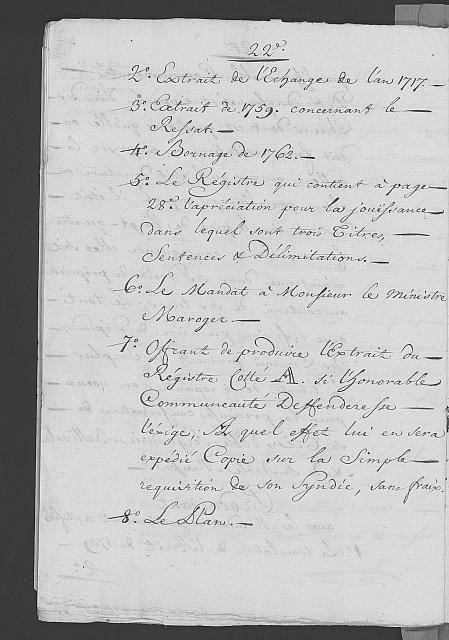 22e.
2º. Extrait de l'Echange de l'an 1717.—
3º. Extrait de 1759. concernant le
Ressat.—
4º. Bornage de 1762.—
5º. Le Régistre qui contient à page—
28.e l'apréciation pour la jouïssance—
dans lequel sont trois Titres,—
Sentences & Délimitations.—
6º. Le Mandat à Monsieur le Ministre
Maroger—
7º. Offrant de produire l'Extrait du—
Régistre Cotté A. si l'Honorable
Communeauté Deffenderesse—
l'exige, à quel effet lui en sera
expédié Copie sur la Simple—
requisition de son Syndic, sans fraix.
8º. Le Plan.—